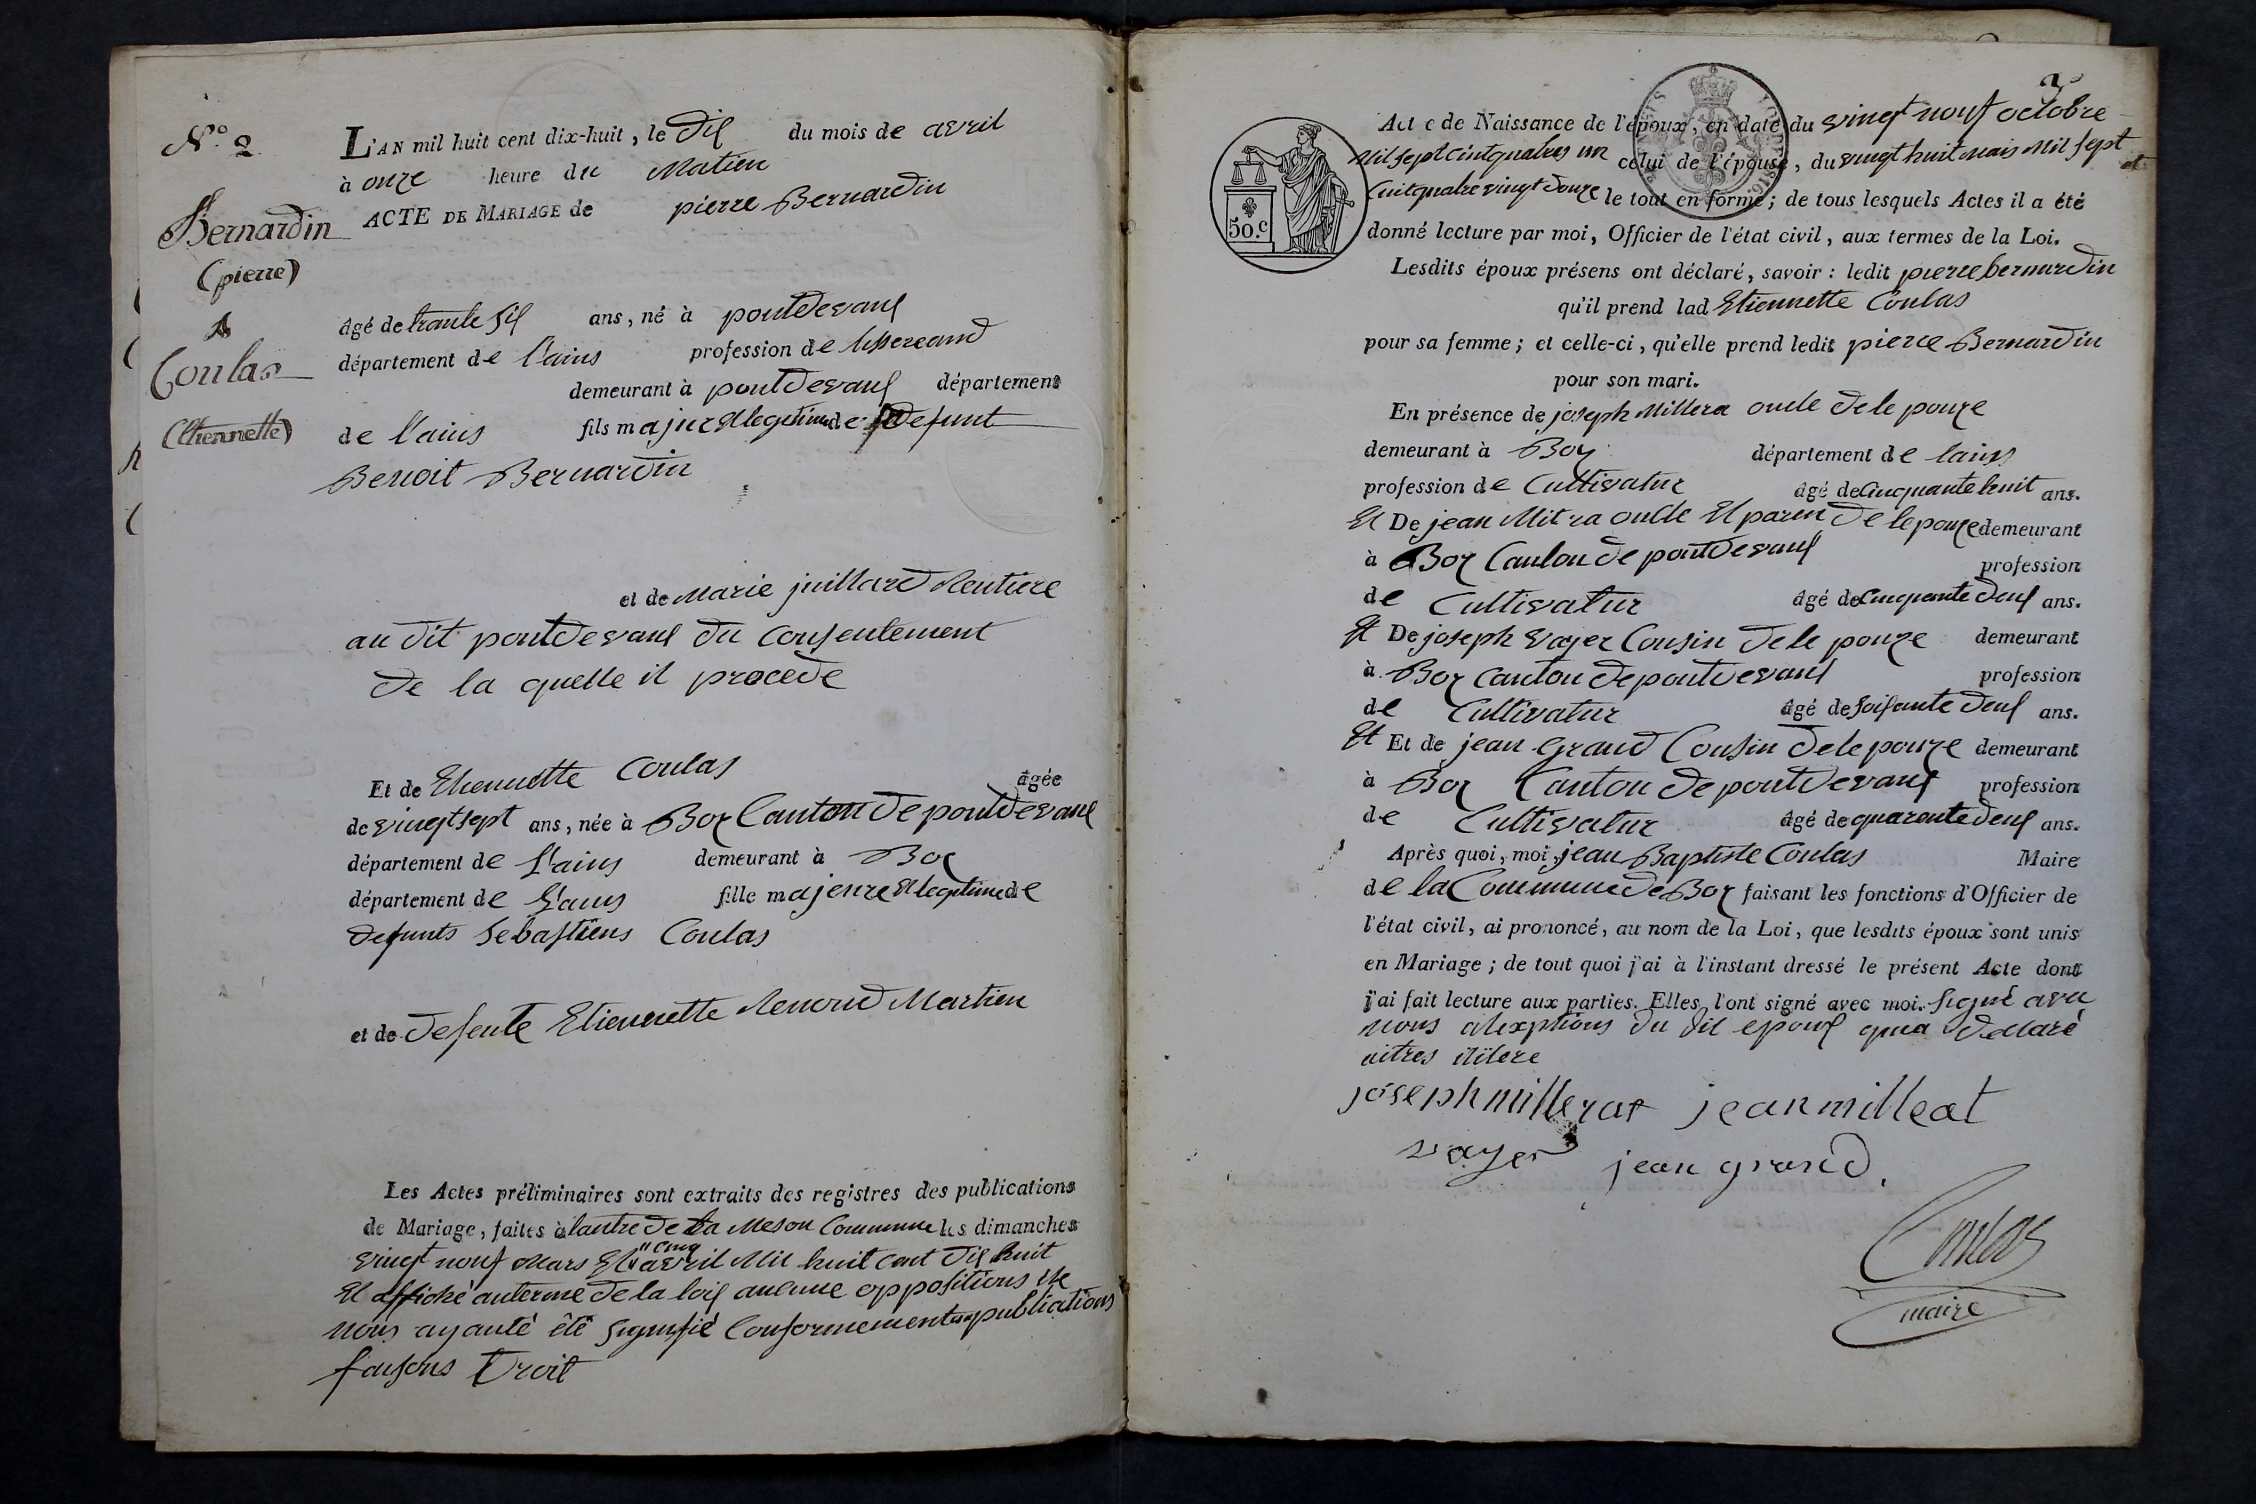 N.º 2
Bernardin
(pierre)
&
Coulas
(Etiennette)
L'AN mil huit cent dix-huit, le dix du mois de avril
à onze heure du Matien
ACTE DE MARIAGE de pierre Bernardin
âgé de trante six ans, né à pontdevaux
département de l'ains profession de tisserand
demeurant à pontdevaux département
de l'ains fils majeur et legitime de defunt
Benoit Bernardin
et de Marie juillard Rentiere
au dit pontdevaux du consentement
de la quelle il procede
Et de Etiennette Coulas âgée
de vingt sept ans, née à Boz Canton de pontdevaux
département de l'ains demeurant à Boz
département de l'ains fille majeure et legitime de
defunts Sebastiens Coulas
et de defunte Etiennette Renoud Martien
Les Actes préliminaires sont extraits des registres des publications
de Mariage, faites à lantre de la Meson Commune les dimanches
vingt nouf Mars et cinq avril Mil huit cent dix huit
Et affiché auterme de la loix aucune oppositions Ne
nous ayanté été signifié Conformement aux publications
faisons Droit
50.c
Acte de Naissance de l'époux, en date du vingt nouf octobre
Mil sept cint quatres un celui de l'épouse, du vingt huit Mais Mil sept
Cint quatre vingt douze le tout en forme; de tous lesquels Actes il a été
donné lecture par moi, Officier de l'état civil, aux termes de la Loi.
Lesdits époux présens ont déclaré, savoir: ledit pierre bernardin
qu'il prend lad Etiennette Coulas
pour sa femme; et celle-ci, qu'elle prend ledit pierre Bernardin
pour son mari.
En présence de joseph Millera oncle de le pouze
demeurant à Boz département de lains
profession de Cultivatur âgé de Cinquante huit ans.
Et De jean Mitra oncle Et paren de le pouze demeurant
à Boz Canton de pontdevaux profession
de Cultivatur âgé de Cinquante deux ans.
Et De joseph vayer Cousin de le pouze demeurant
à Boz Canton de pontdevaux profession
de Cultivatur âgé de soixante deux ans.
Et Et de jean Grand Cousin de le pouze demeurant
à Boz Canton de pontdevaux profession
de Cultivatur âgé de quarente deux ans.
Après quoi, moi, jean Baptiste Coulas Maire
de la Commune de Boz faisant les fonctions d'Officier de
l'état civil, ai prononcé, au nom de la Loi, que lesdits époux sont unis
en Mariage; de tout quoi j'ai à l'instant dressé le présent Acte dont
j'ai fait lecture aux parties. Elles l'ont signé avec moi. signé avec
nous alexptions du dit epoux qua declaré
joseph millerat jean milleat
vayer jean grand.
Coulas
maire